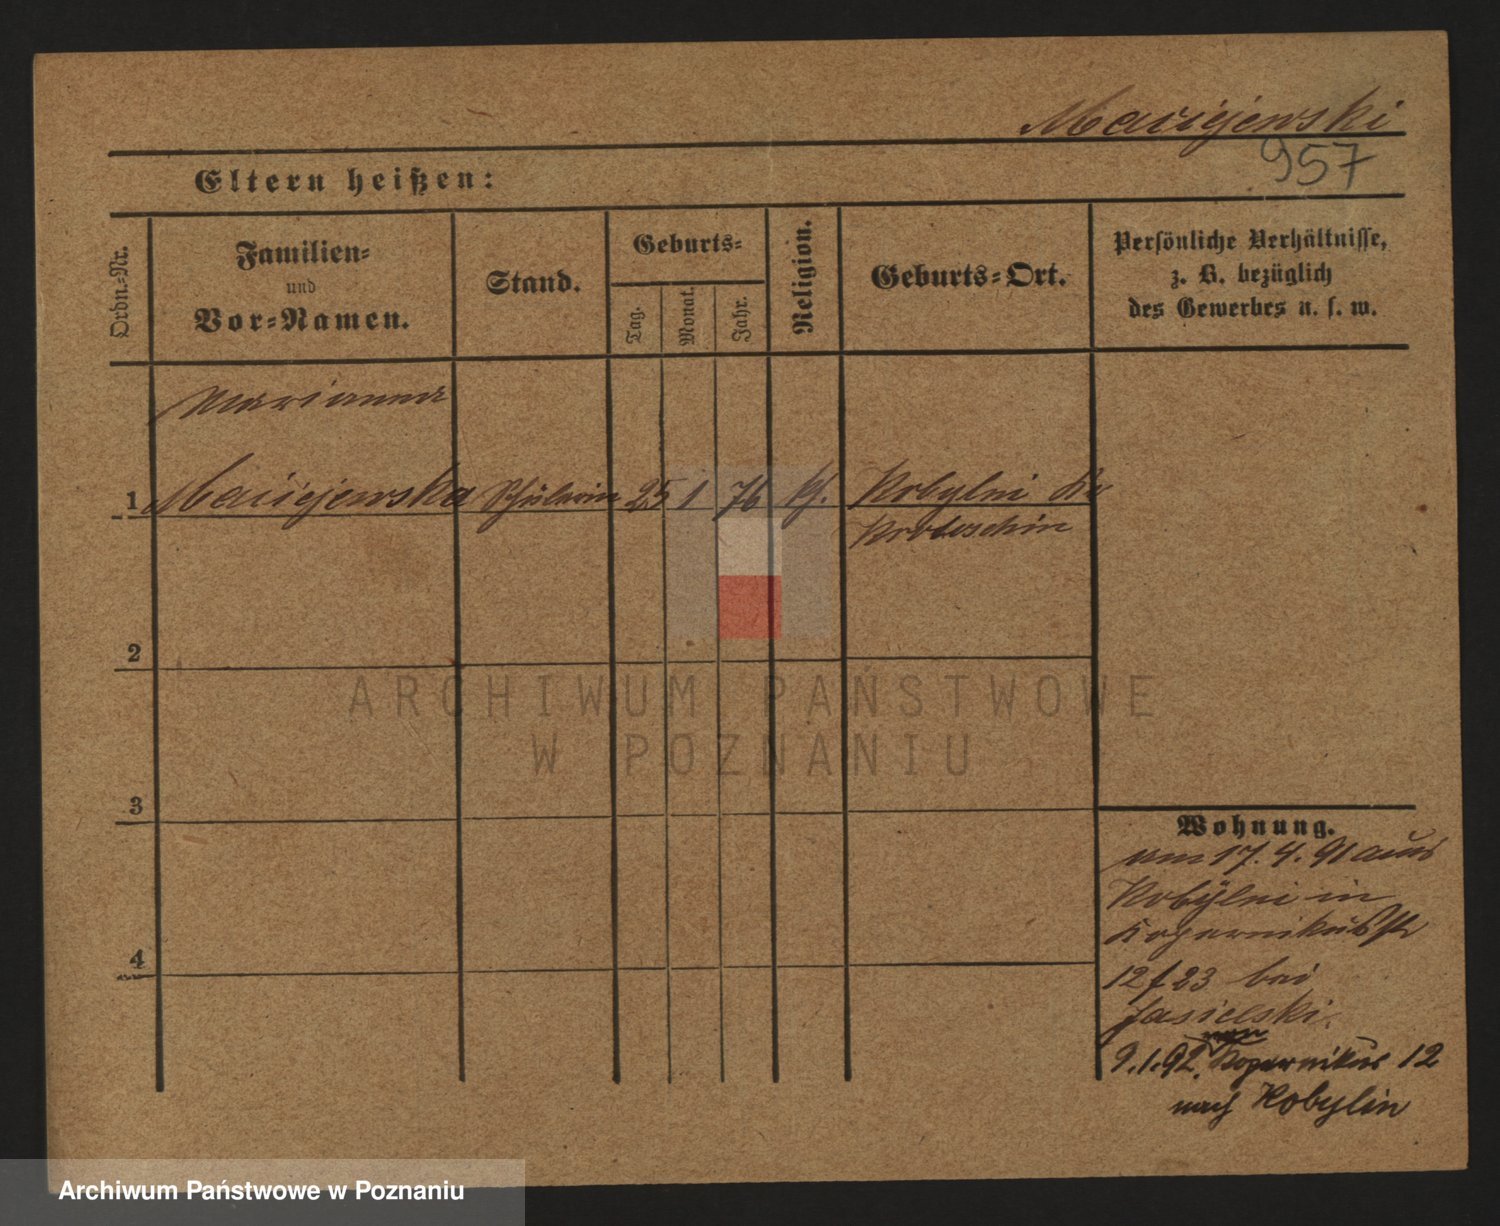 Maciejewski
957
Eltern heißen:
Ordn.-Nr.
Familien-
und
Vor-Namen.
Stand.
Geburts-
Tag.
Monat.
Jahr.
Religion.
Geburts-Ort.
Persönliche Verhältnisse,
z. B. bezüglich
des Gewerbes u. s. w.
Marianna
1 Maciejewska Schülerin 25 1 76 kth. Kobylin Kr
Krotoschin
2
3
4
Wohnung.
am 17. 4. 91 aus
Kobylin in
Kopernikusstr
12 f 23 bei
Jasielski.
9.1.92. von Kopernikus 12
nach Kobylin
ARCHIWUM PAŃSTWOWE
W POZNANIU
Archiwum Państwowe w Poznaniu